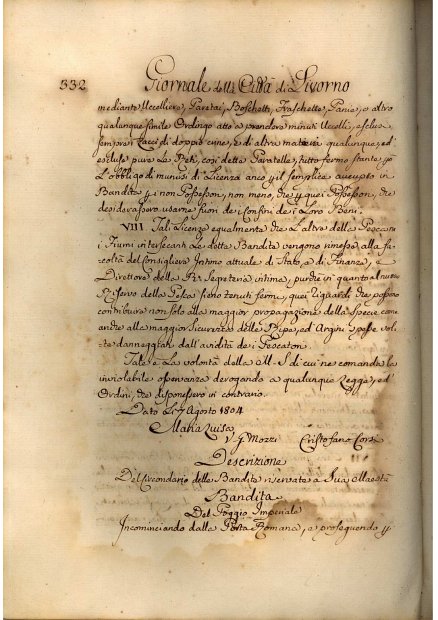 332 Giornale della Città di Livorno
mediante Uccelliere, Paretai, Boschetti, Fraschette, Panie, o altro
qualunque simile Ordingo atto a prendere minuti Uccelli, esclusi
sempre i Lacci di doppio crine, e di altra materia qualunque, ed
escluse pure le Reti, così dette Paratelle, tutto fermo stante, p
l'obbligo di munirsi di Licenza anco p il semplice aucupio in
Bandita p i non Possessori, non meno, che p quei Possessori, che
desiderassero usarne fuori dei confini dei Loro Beni.
VIII Tali Licenze equalmente che l'altre delle Pesca ne
i Fiumi intersecanti le dette Bandite vengono rimesse alla fa-
coltà del Consigliere Intimo attuale di Stato, e di Finanze, e
Direttore della R. Segreteria intima, purche in quanto al nuovo
Riservo della Pesca sieno tenuti fermi quei riguardi che possono
contribuire non solo alla maggior propagazione della specie come
anche alla maggior sicurezza delle Ripe, ed Argini spesse vol-
te danneggiati dall'avidità dei Pescatori
Tale è la volontà della M. S. di cui ne comanda la
inviolabile osservanza derogando a qualunque Legge, ed
Ordini, che disponessero in contrario.
Dato Li 7 Agosto 1804
Maria Luisa
V. G. Mozzi Cristofano Cors
Descrizione
Del Circondario delle Bandite riservate a Sua Maestà
Bandita
Del Poggio Imperiale
Incominciando dalla Porta Romana, e proseguendo p